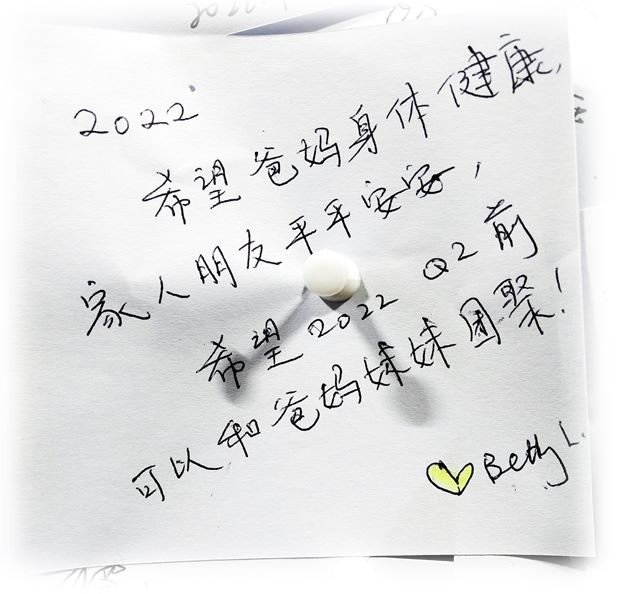 2022
希望爸妈身体健康,
家人朋友平平安安,
希望2022 Q2前
可以和爸妈妹妹团聚!
Betty L.